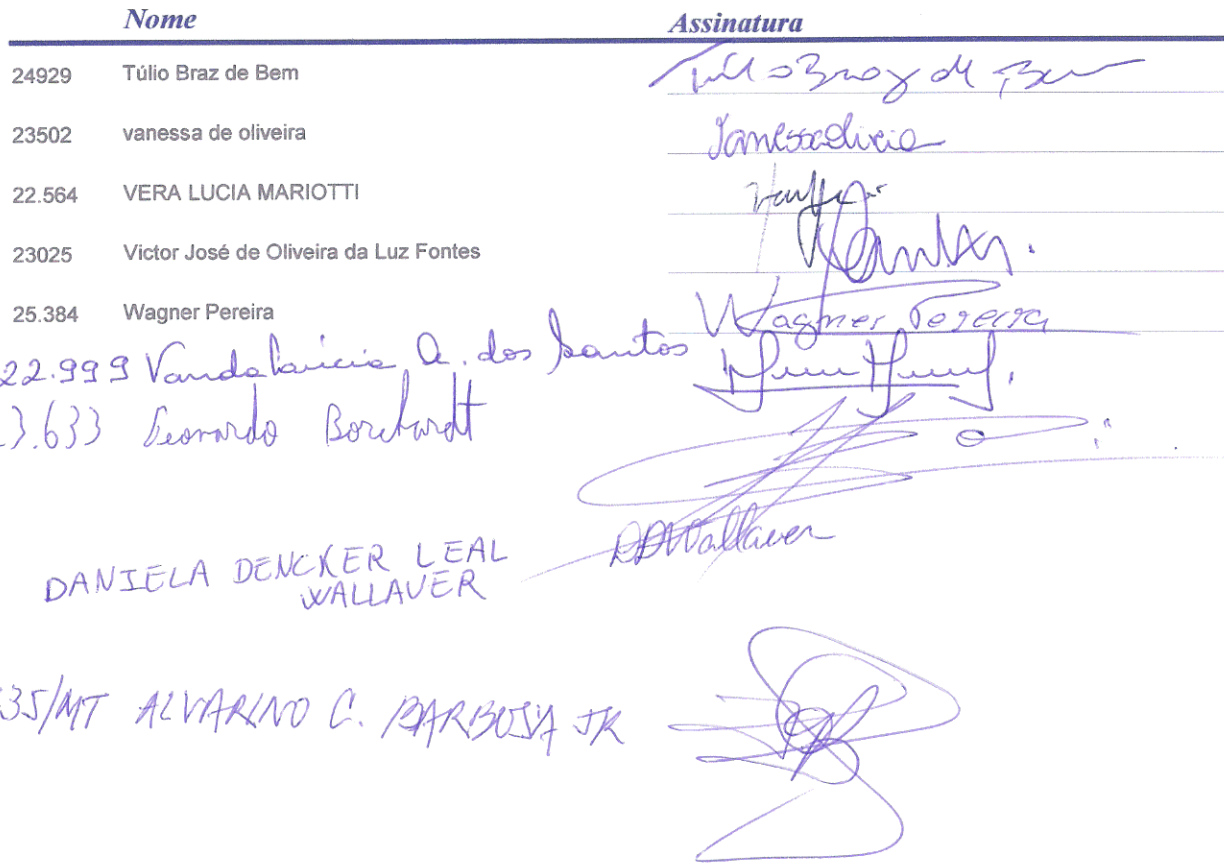 Nome Assinatura
24929 Túlio Braz de Bem Túlio Braz de Bem
23502 vanessa de oliveira
22.564 VERA LUCIA MARIOTTI
23025 Victor José de Oliveira da Luz Fontes
25.384 Wagner Pereira Wagner Pereira
22.999 Vanda Lúcia A. dos Santos
3.633 Leonardo Borchardt
DANIELA DENCKER LEAL DDWallauer
WALLAUER
35/MT ALVARINO C. BARBOSA JR